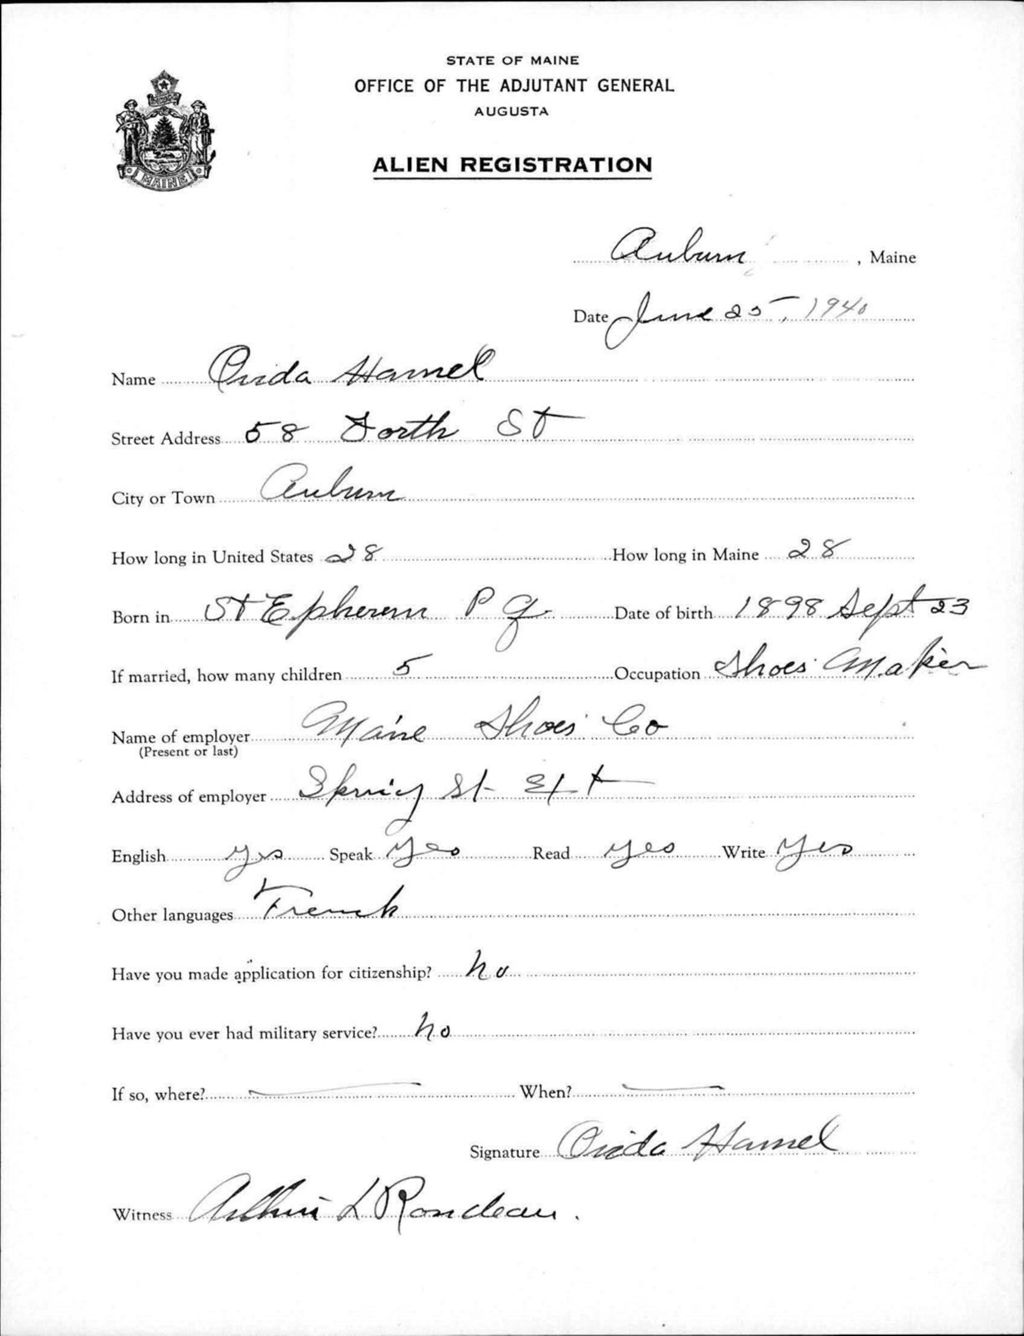 STATE OF MAINE
OFFICE OF THE ADJUTANT GENERAL
AUGUSTA
ALIEN REGISTRATION
MAINE
Auburn, Maine
Date June 25, 1940
Name Ovida Hamel
Street Address 58 Forth St
City or Town Auburn
How long in United States 28 How long in Maine 28
Born in St Epherem P Q. Date of birth 1898 Sept 23
If married, how many children 5 Occupation Shoes Maker
Name of employer Maine Shoes Co
(Present or last)
Address of employer Spring St Ext
English yes Speak yes Read yes Write yes
Other languages French
Have you made application for citizenship? no
Have you ever had military service? no
If so, where? When?
Signature Ovida Hamel
Witness Arthur L Rondeau.